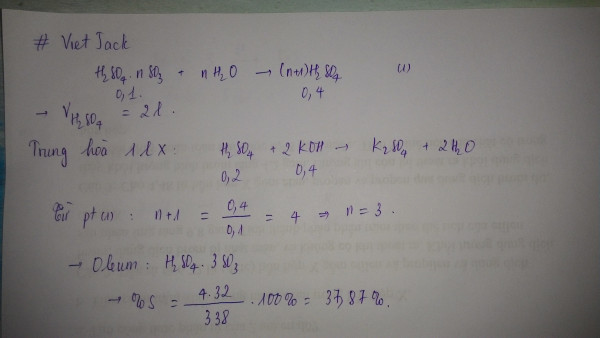 # VietJack
H₂SO₄.nSO₃ + nH₂O → (n+1)H₂SO₄ (1)
0,1. 0,4
→ V_H₂SO₄ = 2l.
Trung hoà 1l X: H₂SO₄ + 2KOH → K₂SO₄ + 2H₂O
0,2 0,4
Từ pt (1): n+1 = 0,4/0,1 = 4 ⇒ n = 3.
→ Oleum: H₂SO₄.3SO₃
→ %S = 4.32/338 .100% = 37,87%.